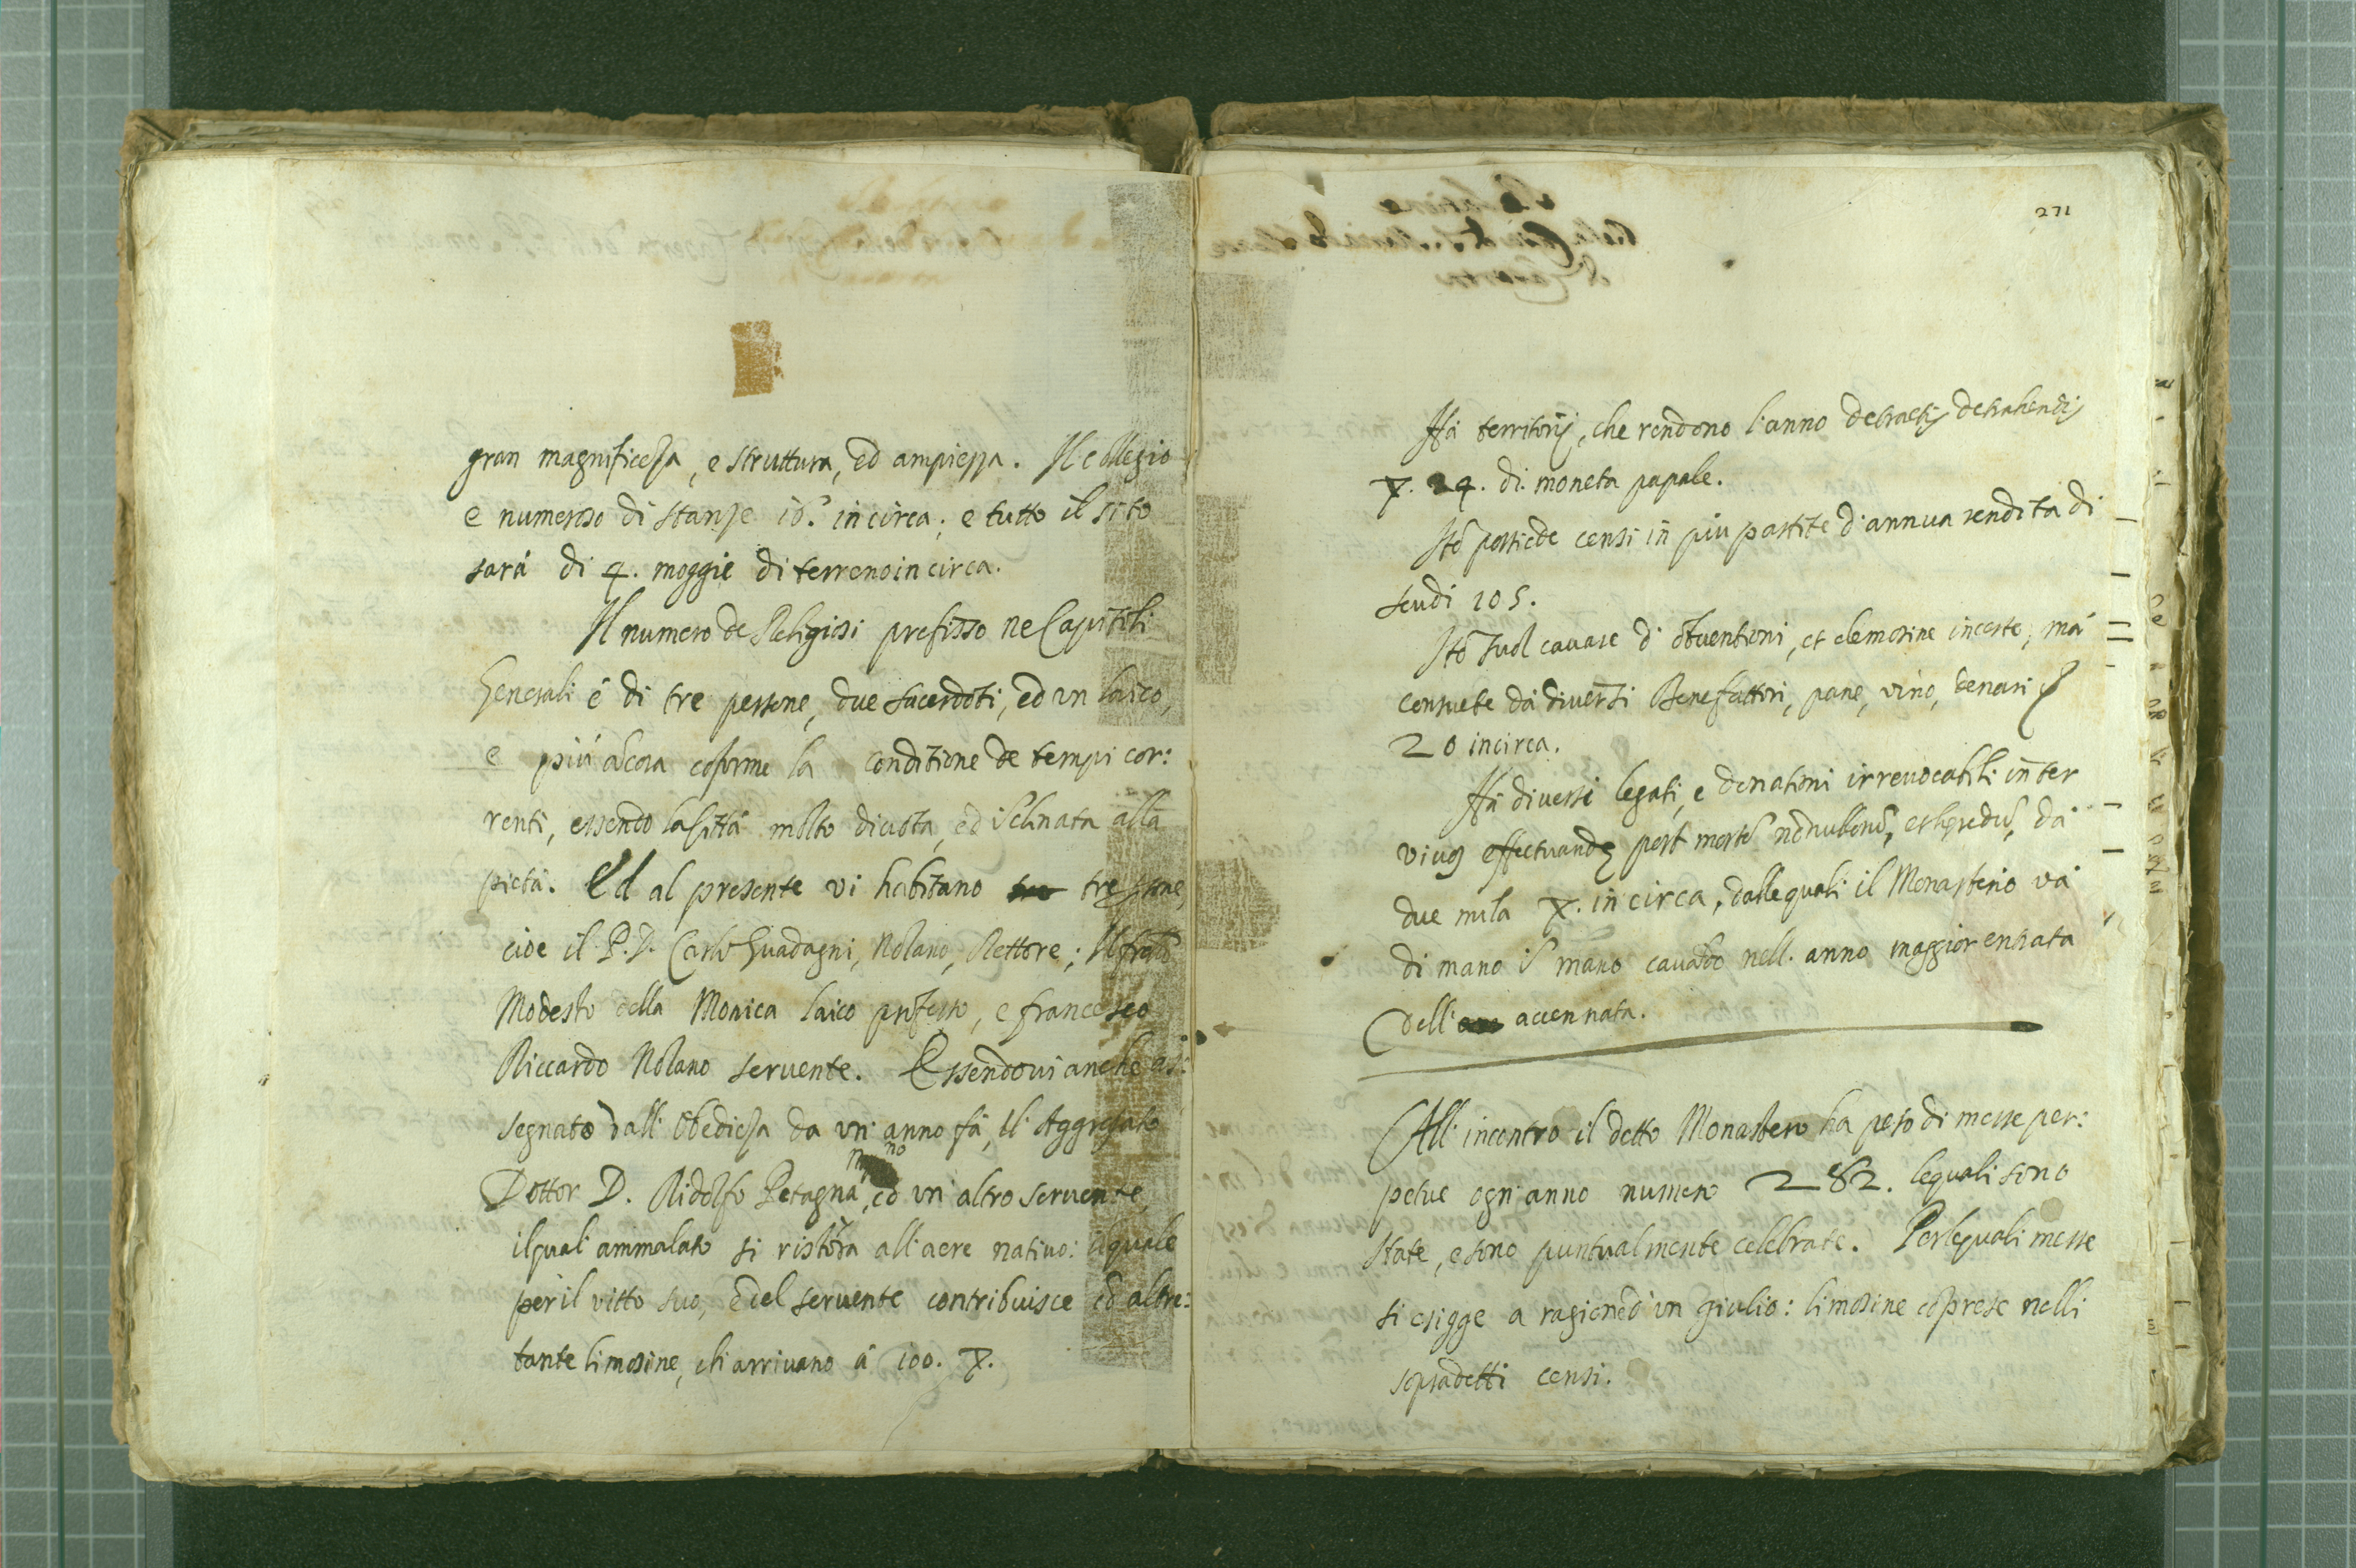 gran magnificeza, e struttura, ed ampiezza. Il collegio
e numeroso di stanze 10. in circa; e tutto il sito
sará di 4. moggie di terreno in circa.
Il numero de Religiosi prefisso ne Capitoli
Generali é di tre persone, due sacerdoti, ed un laico,
e piú ãcora cõforme la conditione de tempi cor:
renti, essendo la Cittá molto divota, ed ĩclinata alla
pietá. Ed al presente vi habitano tre
cioe il P. D. Carlo Guadagni, Nolano, Rettore; Il frat̃o
Modesto della Monica laico professo, e francesco
Riccardo Nolano servente. Essendovi anche as:
segnato dall'Obediẽza da un'anno fá, il Aggregato
Dottor D. Ridolfo Petagna, ed un'altro servente,
il quali ammalato si ristora all'aere nativo: il quale
per il vitto suo, e del servente contribuisce ed altre:
tante limosine, chi arrivano á 100.
271
Há territorij, che rendono l'anno detractis detrahendis
24. di moneta papale.
Itẽ possiede censi in piu partite d'annua rendita di
scudi 105.
Itẽ suol cavare d'obventioni, et elemosine incerte, má
consuete dá diversi Benefattori, pane, vino, denari
20 incirca.
Há diversi legati, e donationi irrevocabili inter
vivos effectuandę post mortẽ dá
due mila in circa, dalle quali il Monasterio vá
di mano ĩ mano cavãdo nell'anno maggior entrata
dell' accennata.
All'incontro il detto Monastero ha peso di messe per:
petue ogn'anno numero 282. le quali sono
state, e sono puntualmente celebrate. Per le quali messe
si esigge a ragione d'un giulio: limosine cõprese nelli
sopradetti censi.